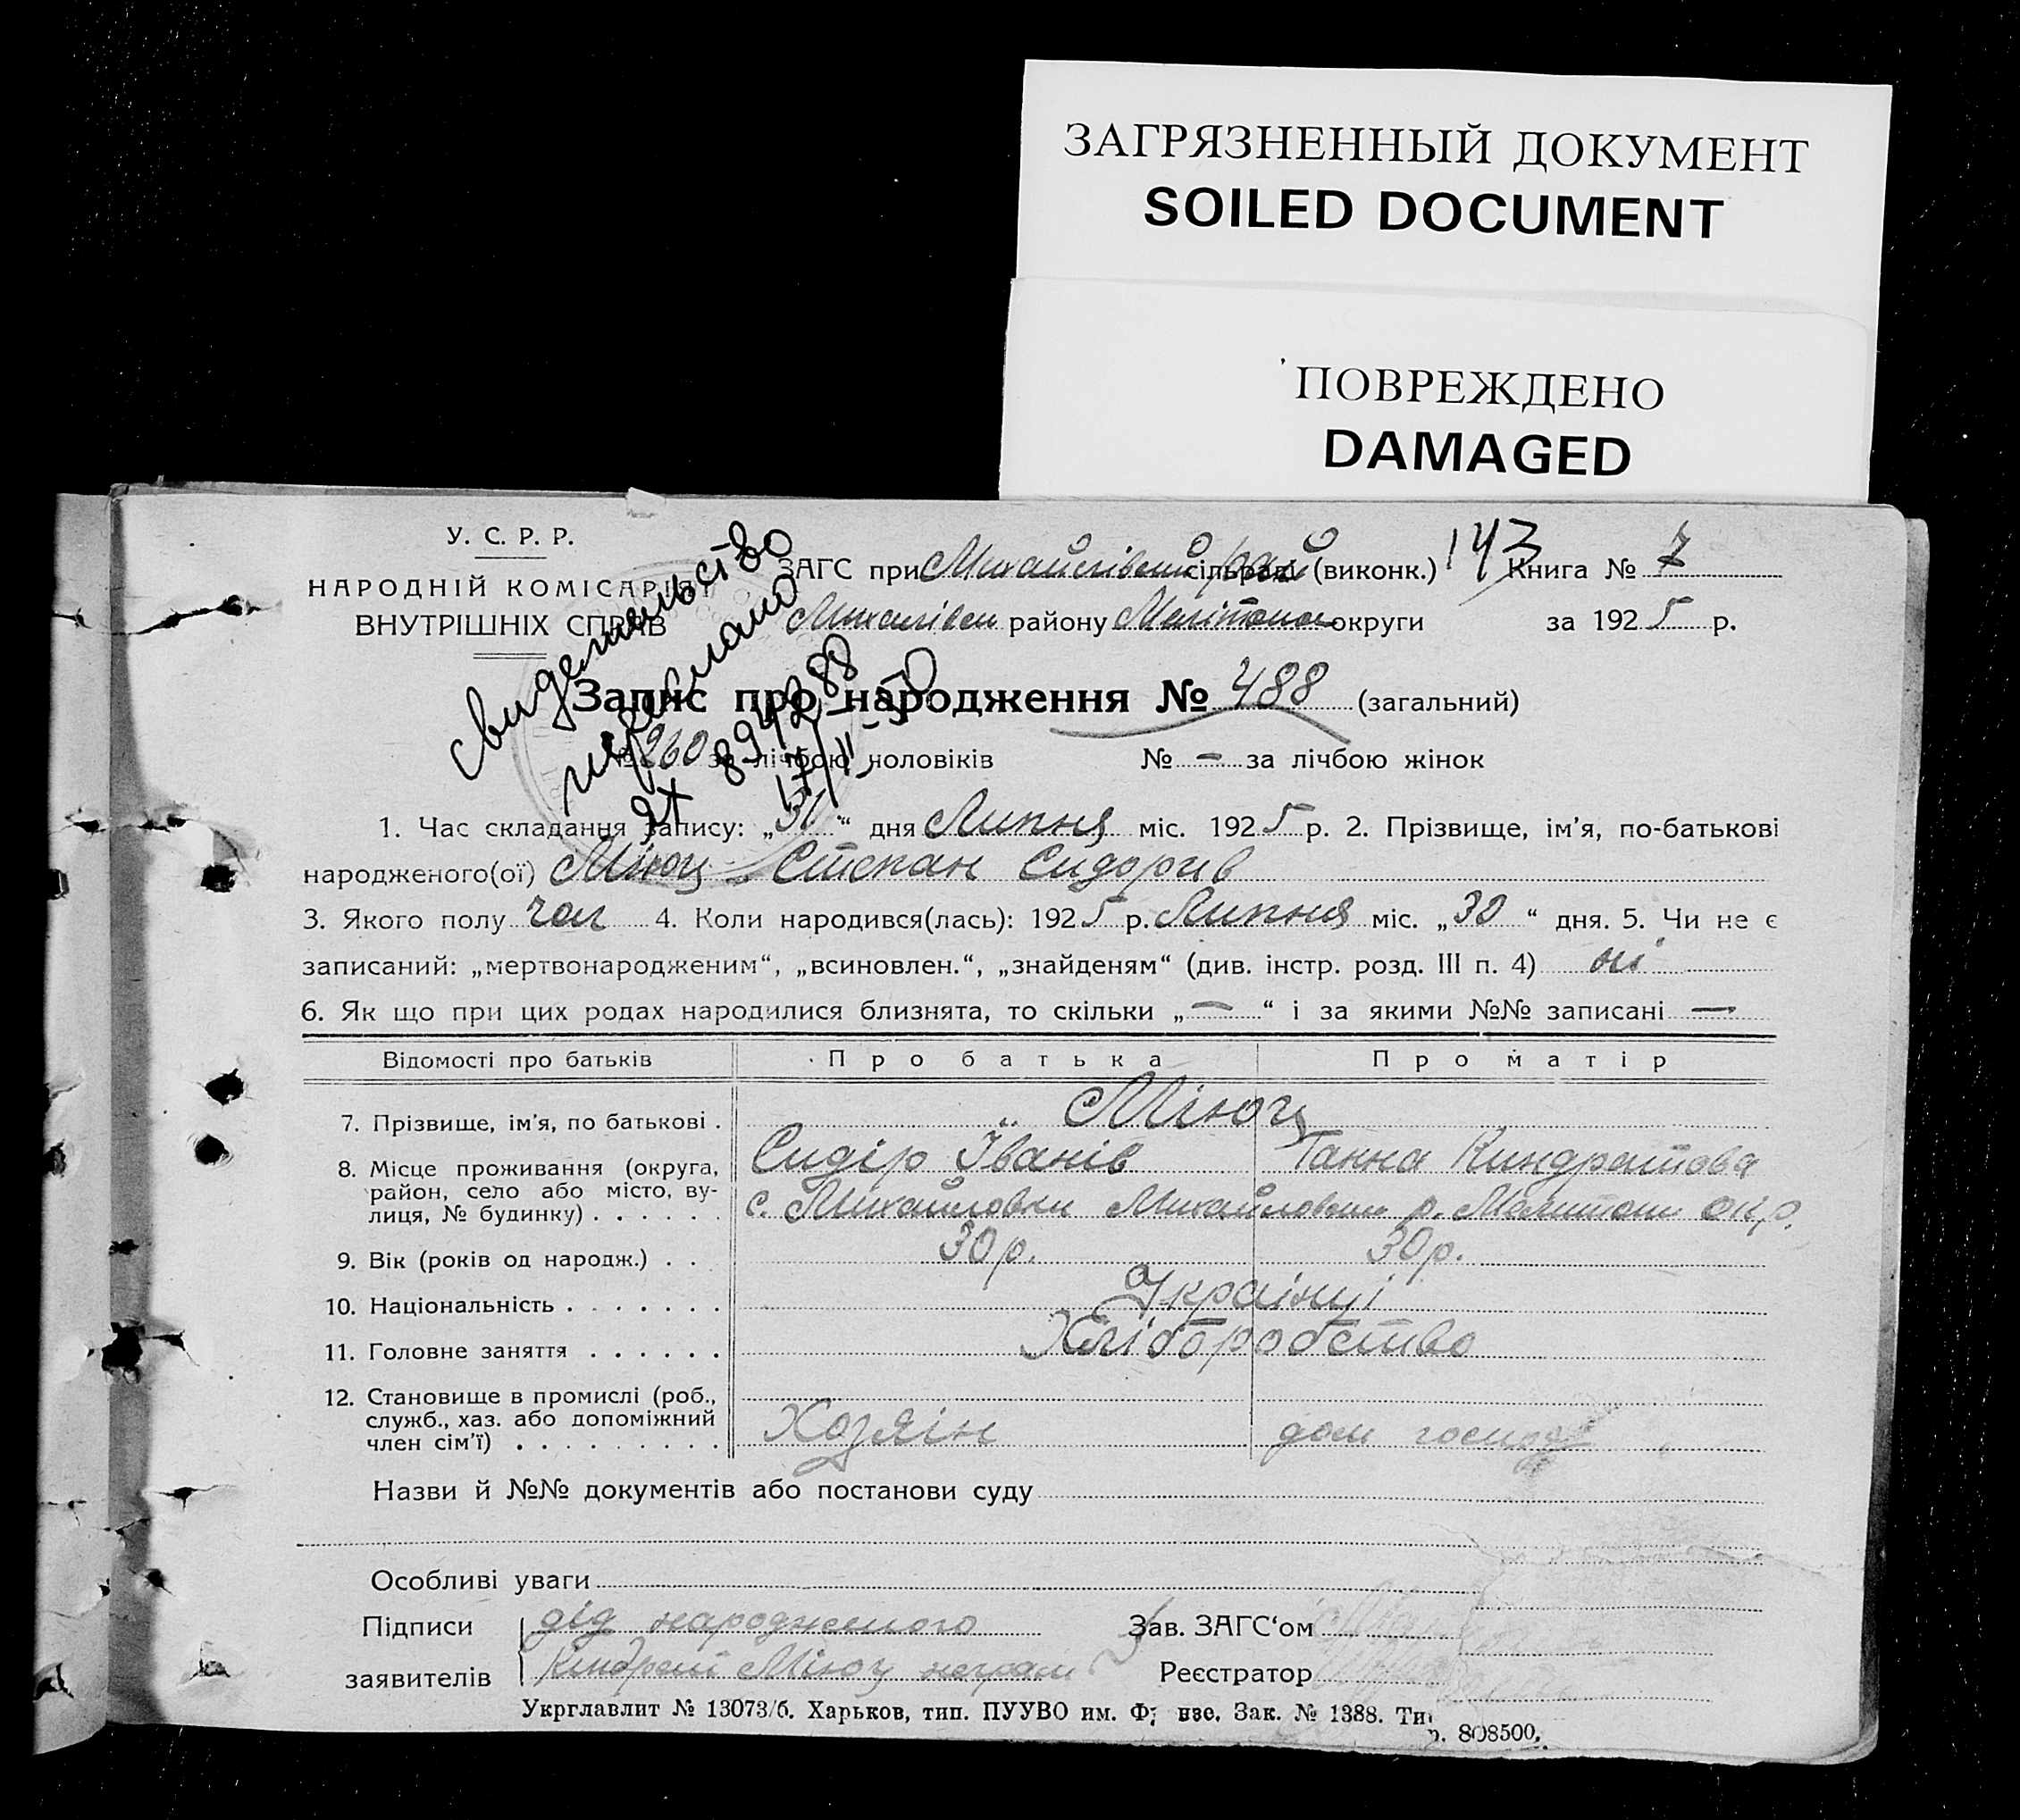 ЗАГРЯЗНЕННЫЙ ДОКУМЕНТ
SOILED DOCUMENT
ПОВРЕЖДЕНО
DAMAGED
У. С. Р. Р.
НАРОДНІЙ КОМІСАРІЯТ
ВНУТРІШНІХ СПРАВ
ЗАГС при сільраді (виконк.) 143 Книга № 7
району округи за 1925 р.
свидетельство
Запис про народження № 488 (загальний)
№ 260 за лічбою чоловіків № — за лічбою жінок
1. Час складання запису: „ “ дня Липня міс. 1925 р. 2. Прізвище, ім’я, по-батькові
народженого(ої) Міюц Степан Сидорив
3. Якого полу чол 4. Коли народився(лась): 1925 р. Липня міс. „30“ дня. 5. Чи не є
записаний: „мертвонародженим“, „всиновлен.“, „знайденям“ (див. інстр. розд. III п. 4) ні
6. Як що при цих родах народилися близнята, то скільки „—“ і за якими №№ записані —
Відомості про батьків Про батька Про матір
7. Прізвище, ім’я, по батькові . Міюц
Сидір Іванів Ганна Киндратова
8. Місце проживання (округа,
район, село або місто, ву-
лиця, № будинку) . . . . . . с. Михайловки р. окр.
9. Вік (років од народж.) . . 30 р. 30 р.
10. Національність . . . . . . . Українці
11. Головне заняття . . . . . . Хліборобство
12. Становище в промислі (роб.,
служб., хаз. або допоміжний
член сім’ї) . . . . . . . . . Хозяїн дом господ
Назви й №№ документів або постанови суду
Особливі уваги
Підписи дід народженого Зав. ЗАГС‘ом
заявителів Киндрат Міюц неграм Реєстратор
Укрглавлит № 13073/б. Харьков, тип. ПУУВО им. Ф нзе. Зак. № 1388. Ти
р. 808500.